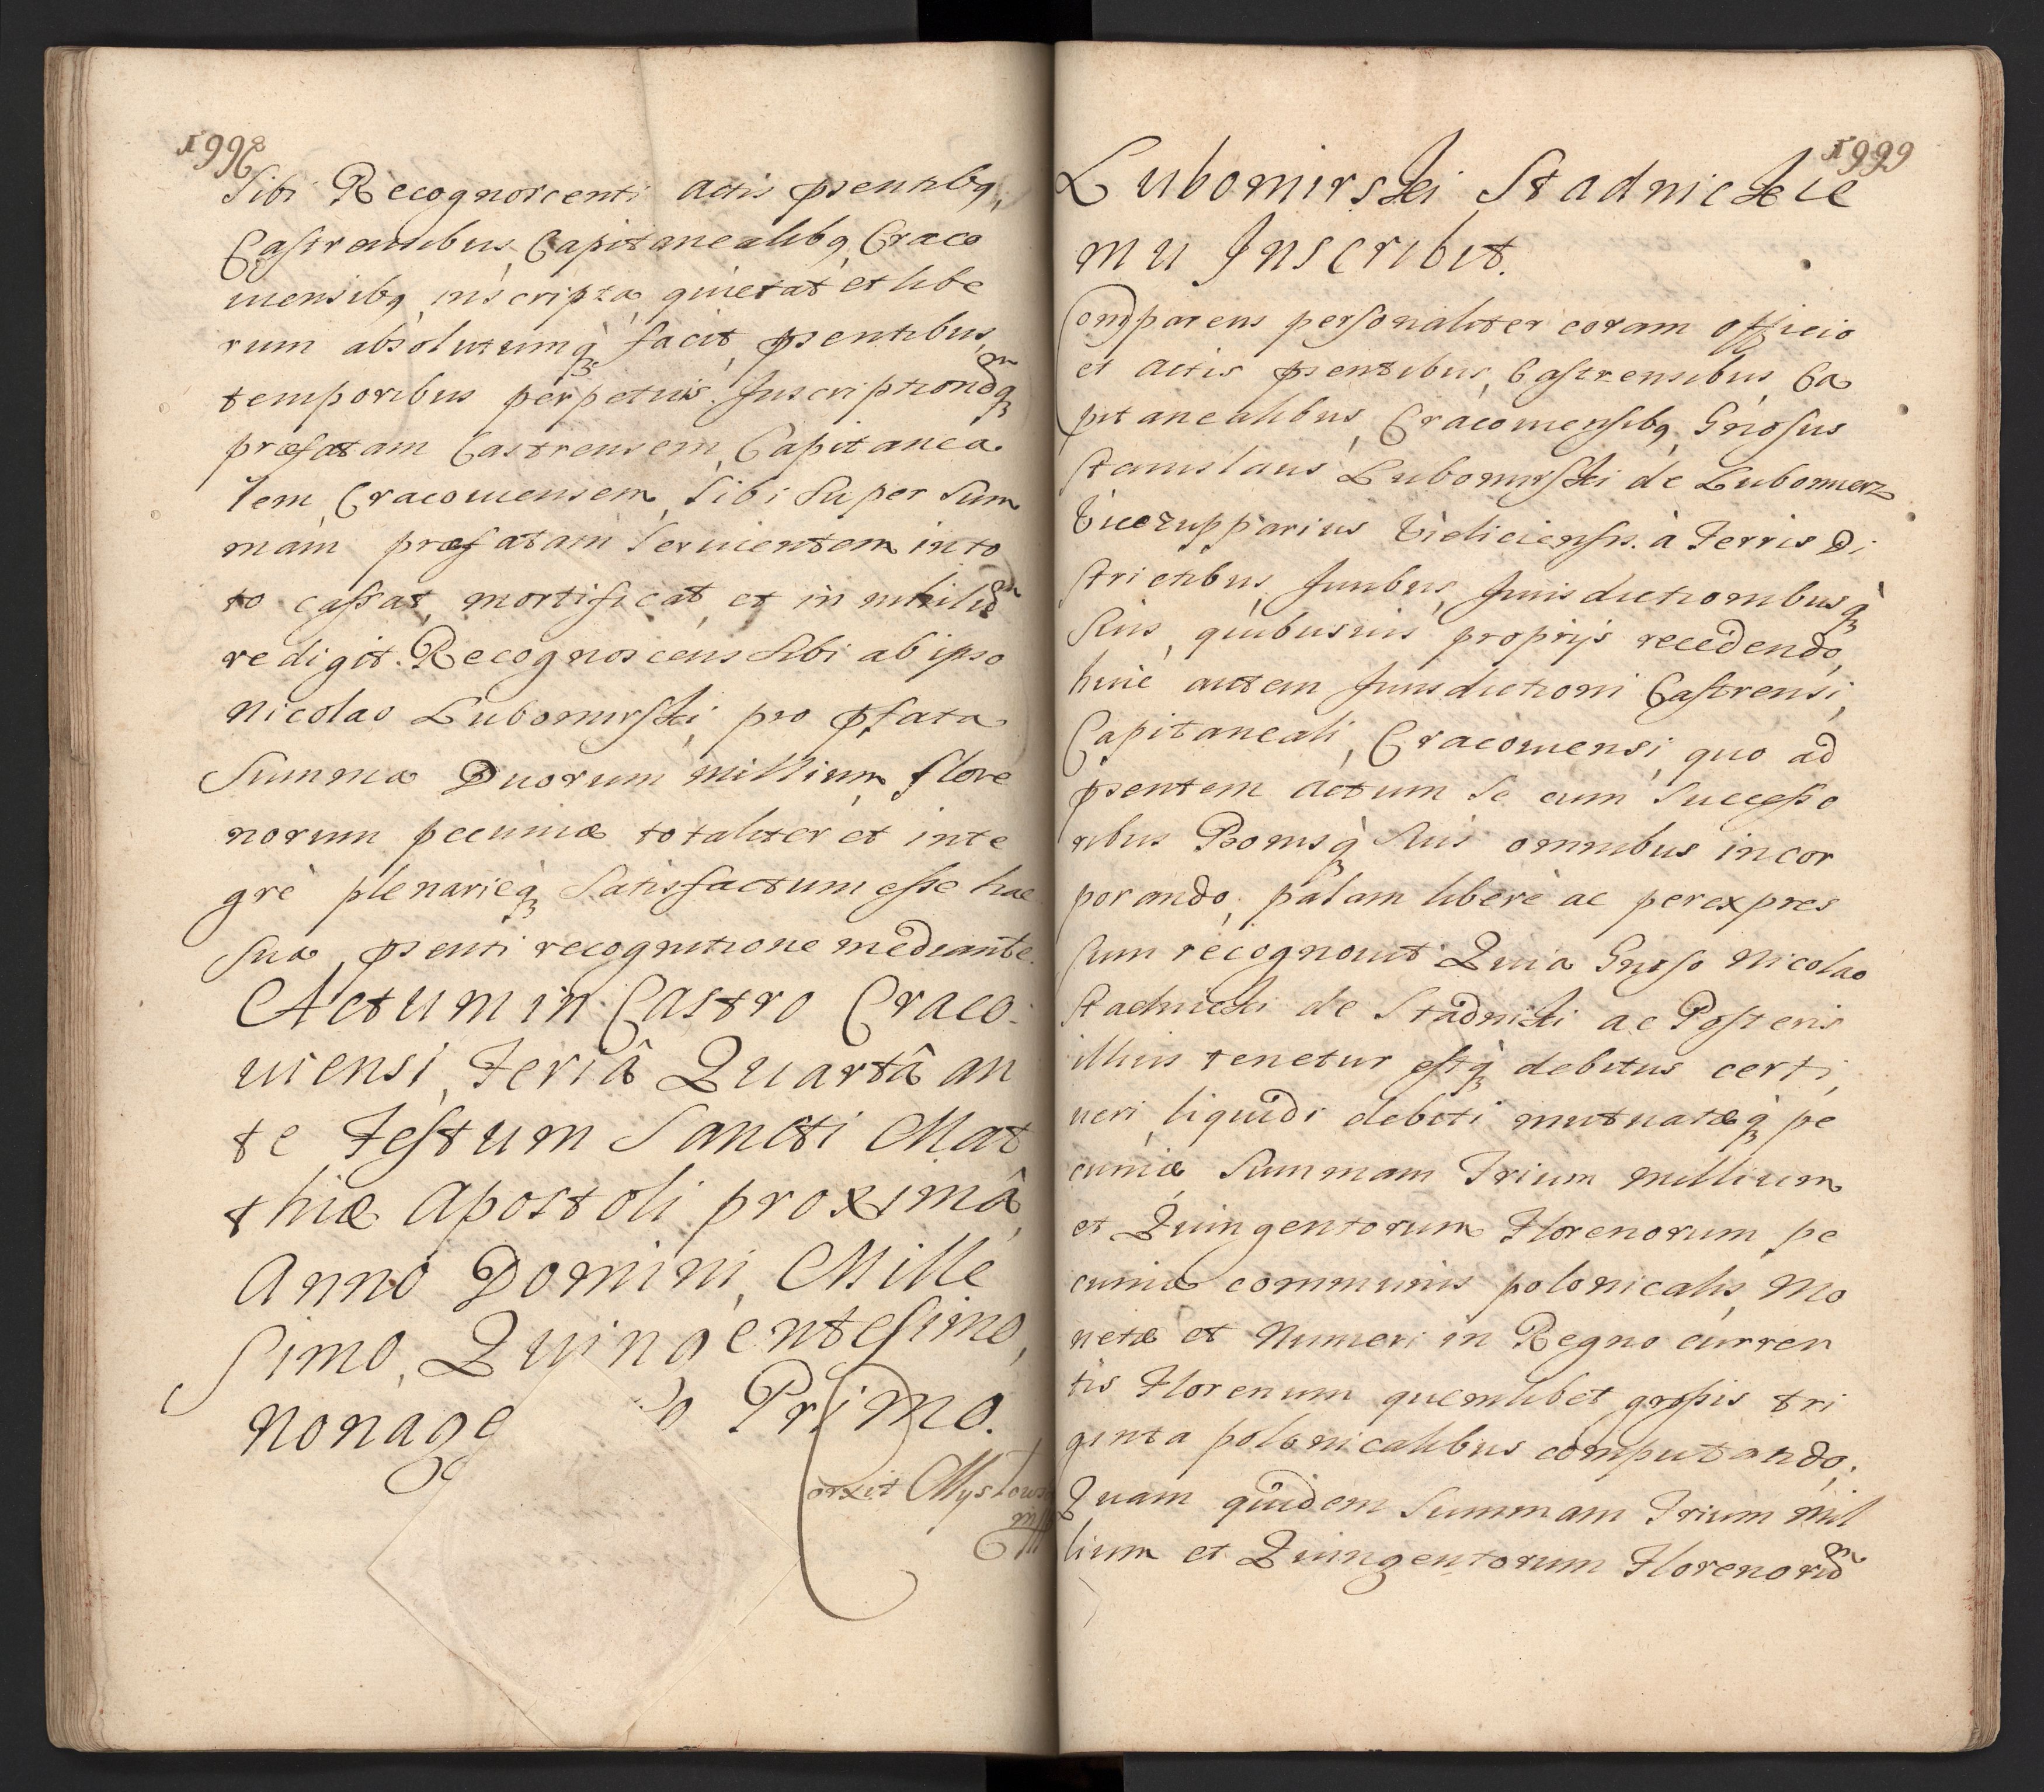 1998
Sibi Recognoscenti actis pſentibq,
Caſtrensibus, Capitanealibq, Craco
uiensibq, inscripta, quietat et libe
rum absolutumq́ʒ facit, pſentibus,
temporibus perpetuis. Inscriptionemq́ʒ
præfatam Castrensem, Capitanea
lem, Cracouiensem, Sibi Super Sum
mam præfatam Seruientem in to
to caſsat, mortificat, et in nihilum
redigit. Recognoscens Sibi ab ipso
Nicolao Lubomirſki, pro pfata
Summa Duorum millium flore
norum pecuniæ totaliter et inte
grè plenarieq́ʒ Satisfactum eſse hac
Sua, pſenti recognitione mediante.
Actum in Castro Craco
uiensi, Feriâ Quartâ an
te Feſtum Sancti Mat
thiæ Apostoli proximâ,
Anno Domini, Mille
Simo, Quingenteſimo,
Nonage Primo.
1999
Lubomirski Stadnickie
mu Inscribit.
Comparens perſonaliter coram officio
et actis pſentibus, Caſtrensibus, Ca
pitanealibus, Cracouienſibq, Gnoſus
Stanislaus Lubomirſki de Lubomierz
Vicezupparius Vieliciensis. à Terris Di
ſtrictibus Iuribus, Iurisdictionibusq́ʒ
Suis, quibusuis proprijs recedendo,
huic autem Iurisdictioni Caſtrensi,
Capitaneali, Cracouiensi, quo ad
pſentem actum Se cum Succeſso
ribus Bonisq́ʒ Suis omnibus incor
porando, palam liberè ac per expres
Sum recognouit Quia Gnoſo Nicolao
Stadnicki de Stadniki ac Poſteris
illius tenetur eſtq́ʒ debitus certi,
ueri, liquidi debiti mutuatæq́ʒ pe
cuniæ Summam Trium Millium
et Quingentorum Florenorum pe
cuniæ communis polonicalis, Mo
netæ et Numeri in Regno curren
tis Florenum quemlibet groſsis tri
ginta polonicalibus computando,
Quam quidem Summam Trium Mil
lium et Quingentorum Florenorum